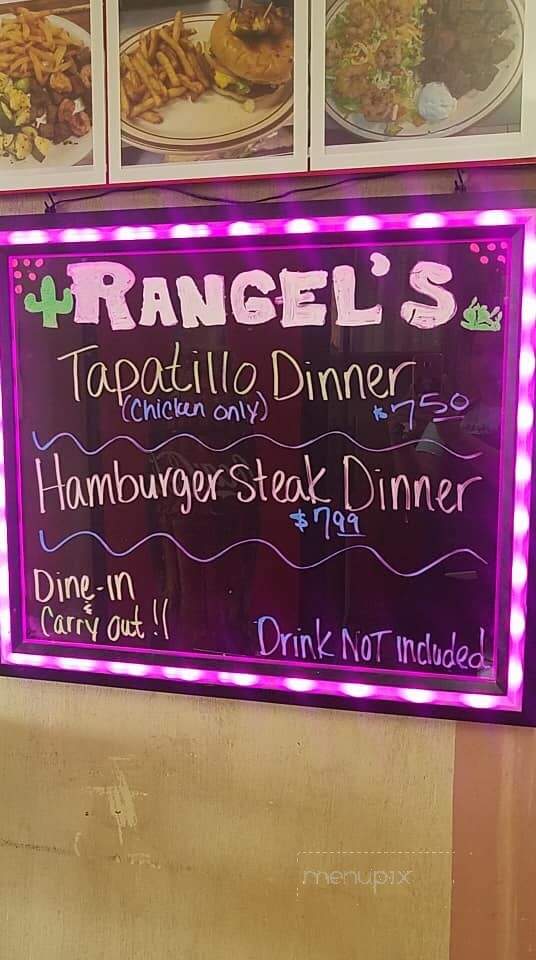 RANGEL'S
Tapatillo Dinner
(Chicken only)
$7.50
Hamburger Steak Dinner
$7.99
Dine-in
&
Carry out!!
Drink NOT included
menupix